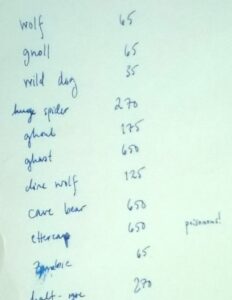 wolf 65
gnoll 65
wild dog 35
huge spider 270
ghoul 175
ghast 650
dire wolf 125
cave bear 650
ettercap 650 poisonous!
Zombie 65
half-ogre 270